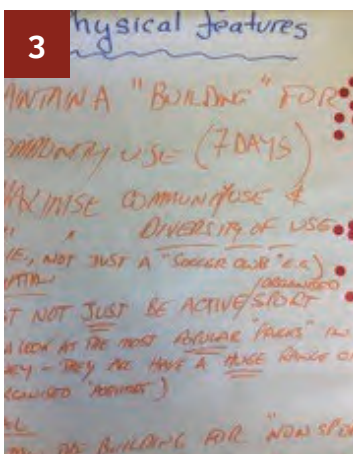 3
hysical features
INTAIN A "BUILDING" FOR
OMMUNITY USE (7 DAYS)
AXIMISE COMMUNITY USE &
" " DIVERSITY OF USE
IE, NOT JUST A "SOCCER CLUB" E.G.)
/ORGANISED
T NOT JUST BE ACTIVE/SPORT
A LOOK AT THE MOST POPULAR "PARKS" IN
NEY - THEY ALL HAVE A HUGE RANGE O
GANISED
BUILDING FOR "NON SPO